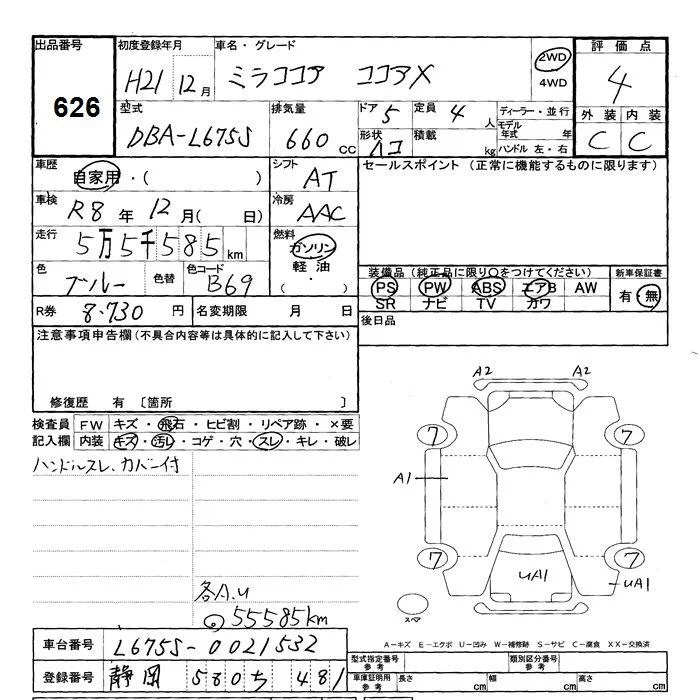 出品番号
626
初度登録年月
H21 12月
車名・グレード
ミラココア ココアX
2WD
4WD
評価点
4
外装 内装
C C
型式
DBA-L675S
排気量
660 cc
ドア 5
定員 4 人
形状
積載 kg
ディーラー・並行
モデル年式 年
ハンドル 左・右
車歴
自家用・( )
シフト
AT
セールスポイント (正常に機能するものに限ります)
車検
R8年 12月( 日)
冷房
AAC
走行
5万5千585km
燃料
ガソリン
軽油
( ・ )
色
ブルー
色替
色コード
B69
装備品(純正品に限り○をつけてください)
PS PW ABS エアB AW
SR ナビ TV カワ
新車保証書
有・無
R券 8.730 円
名変期限 月 日
後日品
注意事項申告欄(不具合内容等は具体的に記入して下さい)
修復歴 有 〔箇所 〕
検査員記入欄
FW キズ・飛石・ヒビ割・リペア跡・×要
内装 キズ・汚レ・コゲ・穴・スレ・キレ・破レ
ハンドルスレ、カバー付
各A.U
55585km
A2 A2
7 7
A1
7 7
UA1
UA1
スペア
A-キズ E-エクボ U-凹み W-補修跡 S-サビ C-腐食 XX-交換済
車台番号 L675S-0021532
登録番号 静岡 580 ち 481
型式指定番号 参考
類別区分番号 参考
車庫証明用 参考 長さ cm 幅 cm 高さ cm